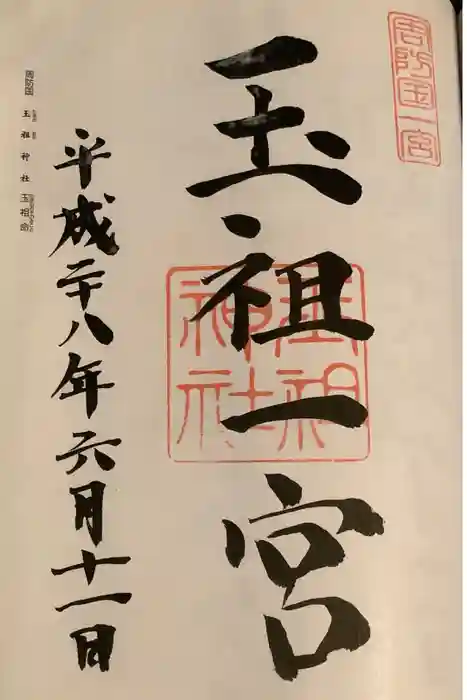 周防国一宮
玉祖一宮
玉祖
神社
平成二十八年六月十一日
周防国
玉祖神社 玉祖命